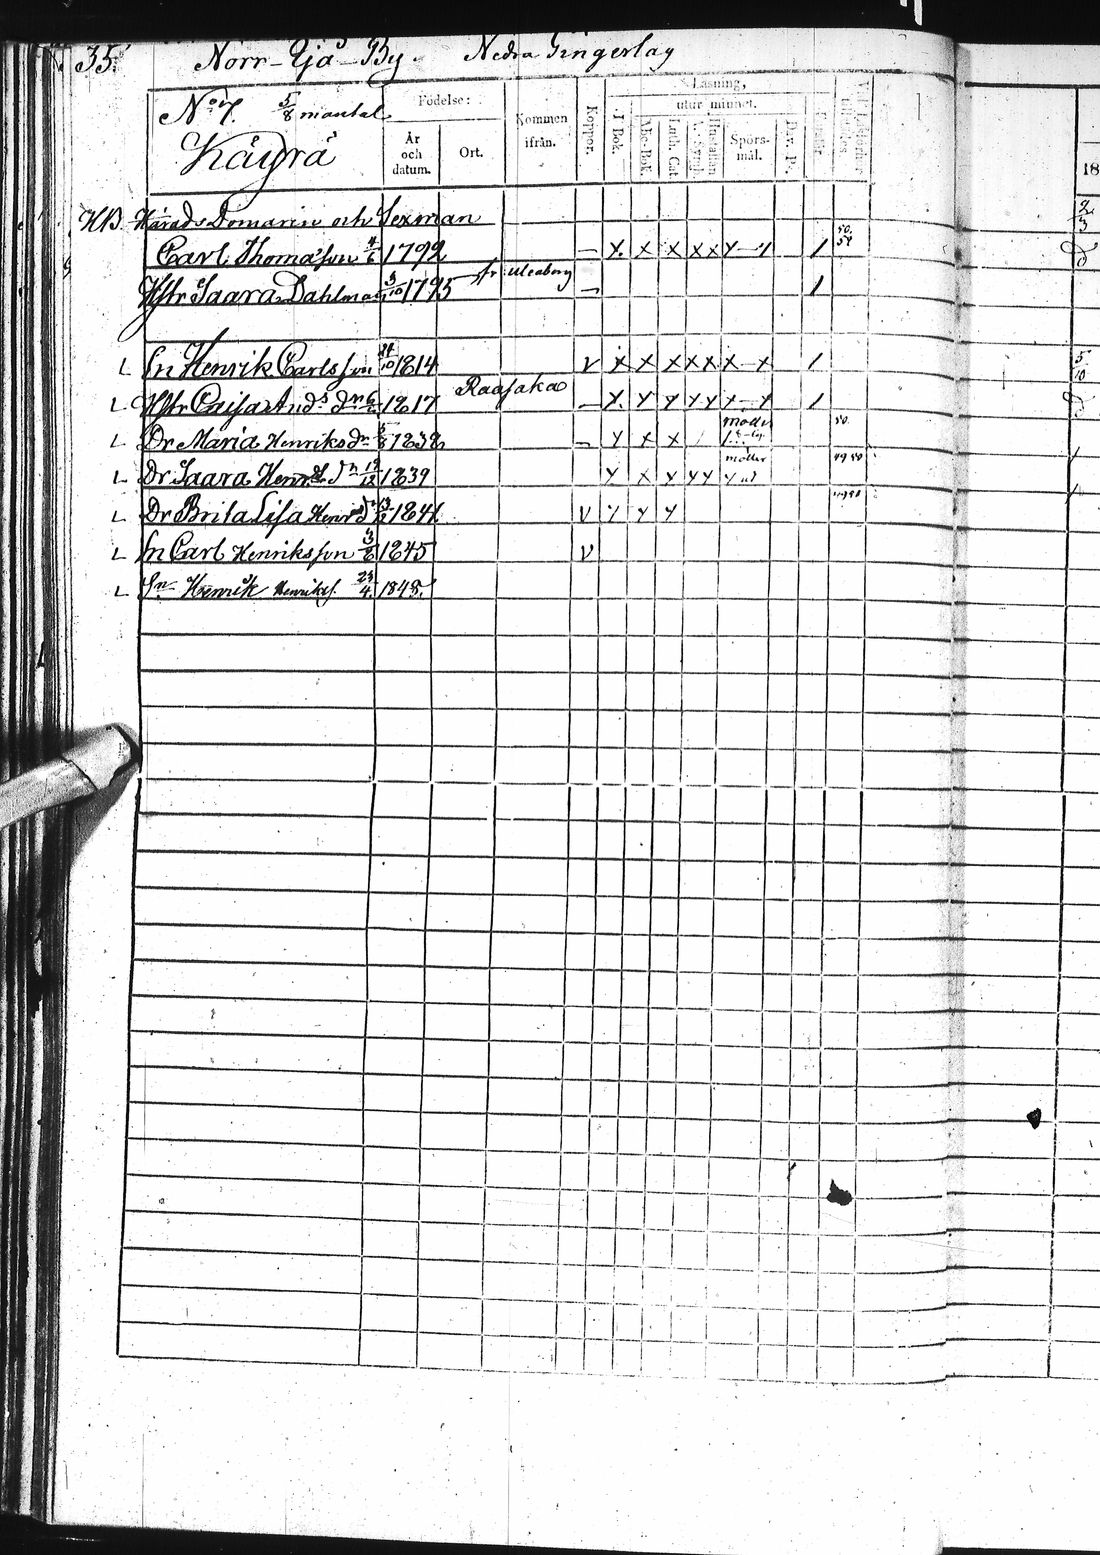 35. Norr-Ijå-By. Nedra Fingerlag
No 7. 5/8 mantal
Käyrä
Födelse:
År och datum.
Ort.
Kommen ifrån.
Koppor.
Läsning, utur minnet.
I Bok.
Abc-Bok
Luth. Cat.
Spörs-mål.
Dav. P.
18
HB Härads Domaren och Sexman 2/3
Carl Thomasson 4/6 1792 — X. X X X X X — X 1 50.
Hstr Saara Dahlman 3/10 1795 fr Uleaborg — 1
L Sn Henrik Carlsson 1814 V X X X X X X — X 1 5/10
L Hstr Caisa And.s dr 1817 Raasaka — X. X X X X X — X 1
L Dr Maria Henriks dr 1838 — X X X 50.
L Dr Saara Henr. dr 1839 X X X X X 49 50
L Dr Brita Lisa Henr. dr 1841 V X X X
L Sn Carl Henriksson 3/8 1845 V
L Sn Henrik Henrikss. 23/4. 1848.